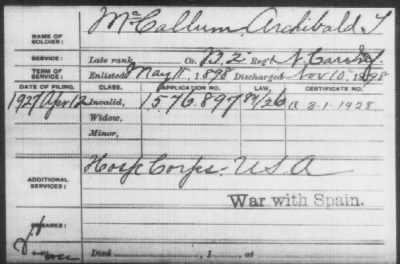 NAME OF SOLDIER: McCallum, Archibald T
SERVICE: Late rank Co. Regt. N. Car. Inf.
TERM OF SERVICE: Enlisted May 11, 1898 Discharged Nov 10, 1898
DATE OF FILING. CLASS. APPLICATION NO. LAW. CERTIFICATE NO.
1927 Apr 12 Invalid, 1576.897
Widow,
Minor,
ADDITIONAL SERVICES: Hosp Corps. USA
War with Spain.
REMARKS:
Died , 1 , at